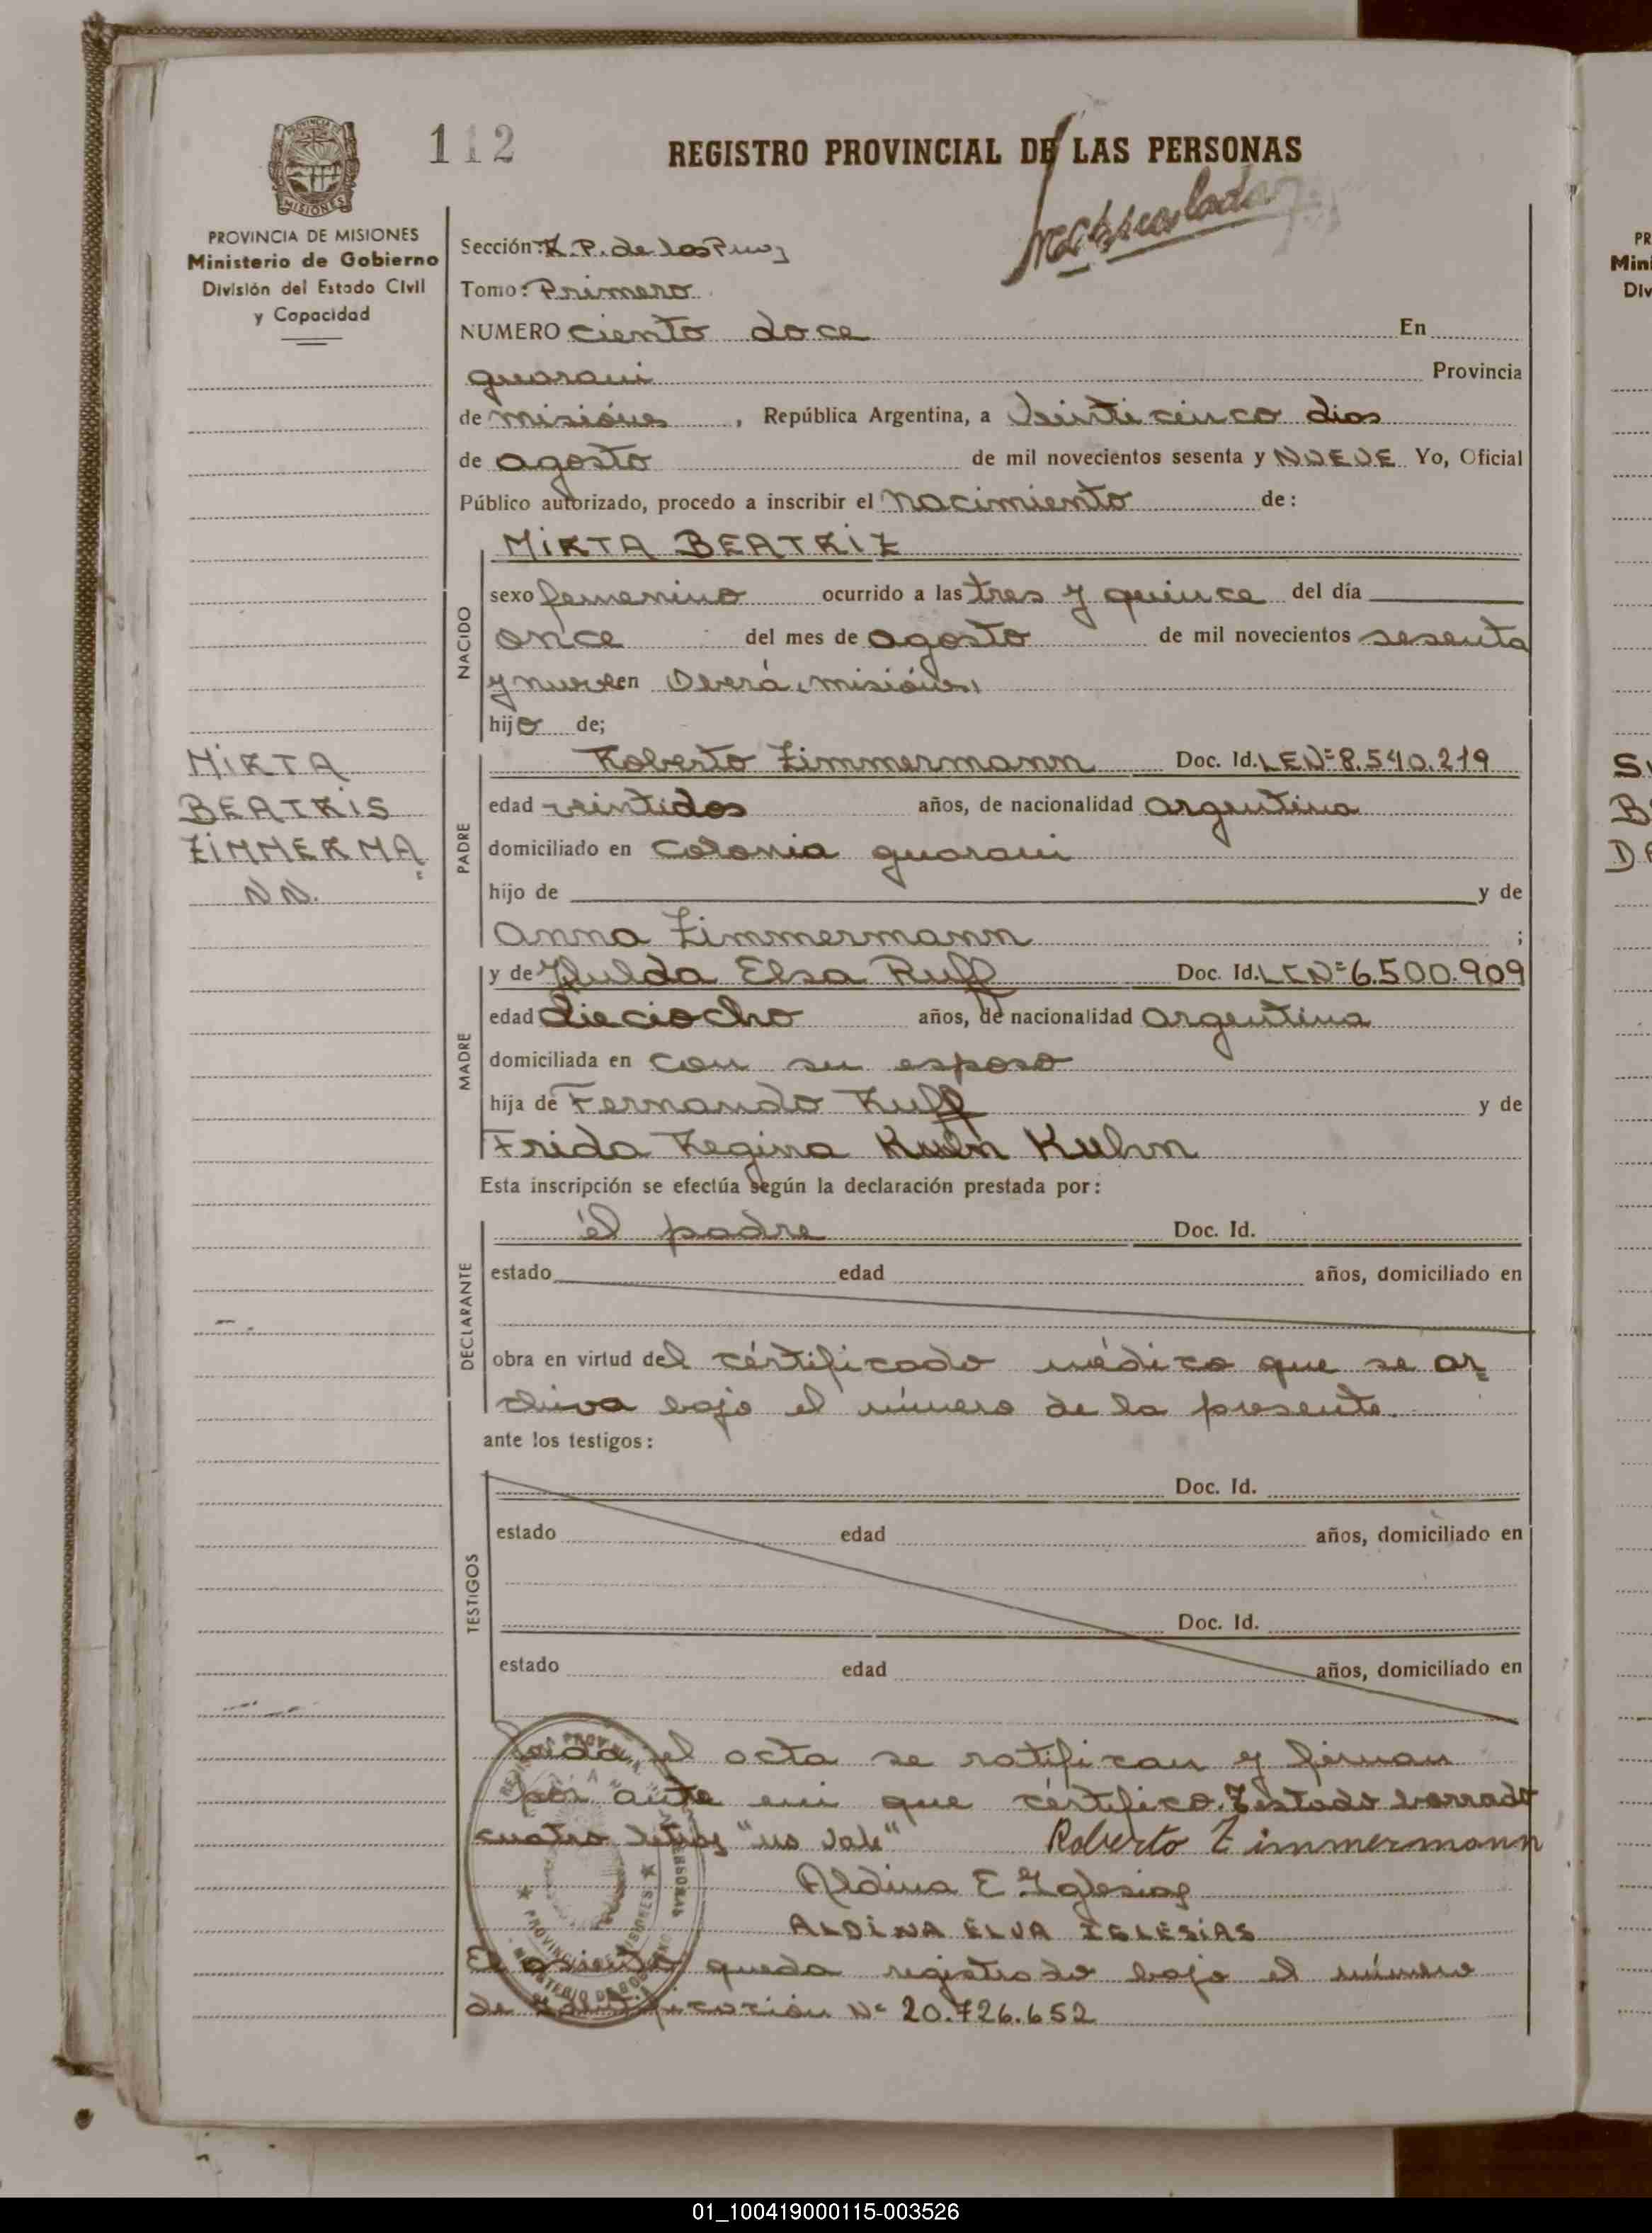 112
REGISTRO PROVINCIAL DE LAS PERSONAS
PROVINCIA DE MISIONES
Ministerio de Gobierno
División del Estado Civil
y Capacidad
Sección: R. P. de las Pers
Tomo: Primero
NUMERO ciento doce En
guarani Provincia
de misiónes, República Argentina, a Veinticinco dias
de agosto de mil novecientos sesenta y NUEVE Yo, Oficial
Público autorizado, procedo a inscribir el nacimiento de:
MIRTA BEATRIZ
NACIDO
sexo femenino ocurrido a las tres y quince del día
once del mes de agosto de mil novecientos sesenta
y nueve en Oberá, misiónes,
hijo de;
MIRTA
BEATRIS
ZIMMERMA
NN.
PADRE
Roberto Zimmermann Doc. Id. L E Nº 8.540.219
edad veintidos años, de nacionalidad argentina
domiciliado en Colonia guarani
hijo de y de
Anna Zimmermann ;
MADRE
y de Hulda Elsa Ruff Doc. Id. L C Nº 6.500.909
edad dieciocho años, de nacionalidad argentina
domiciliada en con su esposo
hija de Fernando Ruff y de
Frida Regina Kuhn Kuhn
Esta inscripción se efectúa según la declaración prestada por:
DECLARANTE
él padre Doc. Id.
estado edad años, domiciliado en
obra en virtud del cértificado médico que se ar
chiva bajo el número de la presente.
ante los testigos:
TESTIGOS
Doc. Id.
estado edad años, domiciliado en
Doc. Id.
estado edad años, domiciliado en
Leida el acta se ratifican y firman
por ante mi que cértifico. Testado borrado
cuatro letras "no vale" Roberto Zimmermann
Aldina E Iglesias
ALDINA ELVA IGLESIAS
El asiento queda registrado bajo el número
de identificación Nº 20.726.652
01_100419000115-003526